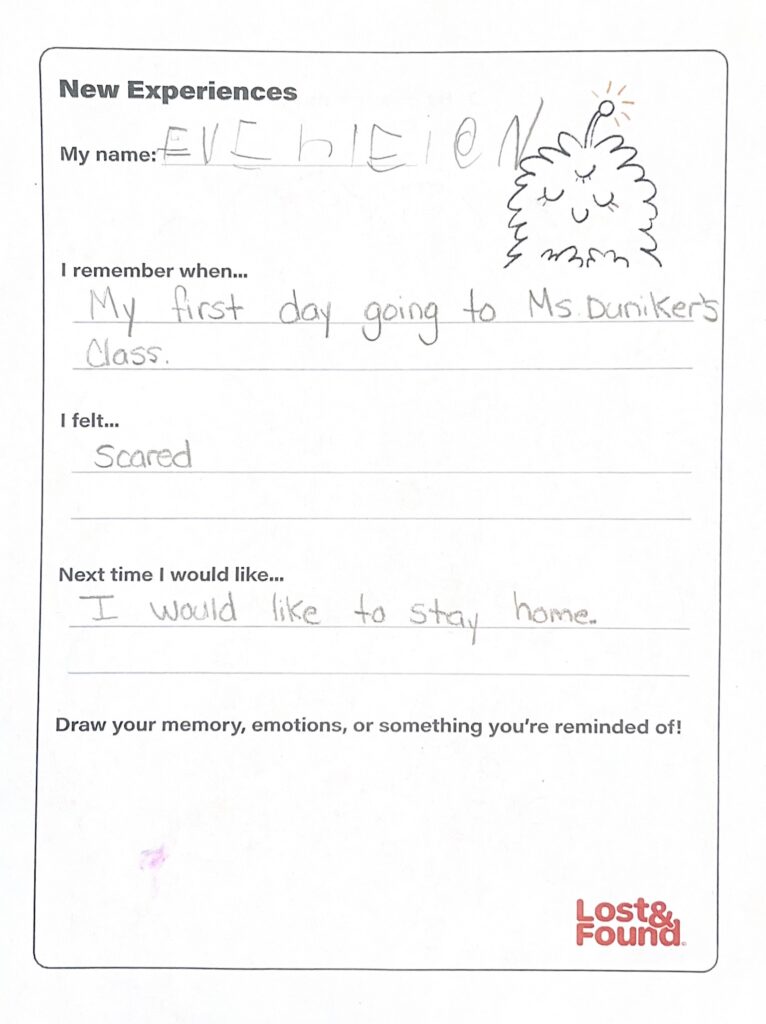 New Experiences
My name:
I remember when...
My first day going to Ms. Duniker's
Class.
I felt...
Scared
Next time I would like...
I would like to stay home.
Draw your memory, emotions, or something you're reminded of!
Lost&
Found